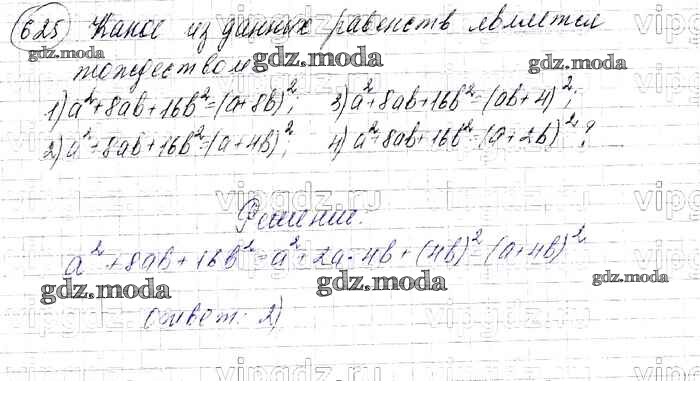 625) Какое из данных равенств является
тождеством
1) a²+8ab+16b²=(a+8b)²; 3) a²+8ab+16b²=(ab+4)²;
2) a²+8ab+16b²=(a+4b)²; 4) a²+8ab+16b²=(a+2b)²?
Решение.
a²+8ab+16b²=a²+2a·4b+(4b)²=(a+4b)²
ответ: 2)
gdz.moda
gdz.moda
gdz.moda
gdz.moda
gdz.moda
gdz.moda
gdz.moda
vipgdz.ru